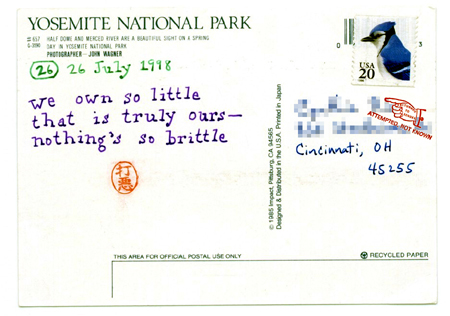 YOSEMITE NATIONAL PARK
# 657 HALF DOME AND MERCED RIVER ARE A BEAUTIFUL SIGHT ON A SPRING
DAY IN YOSEMITE NATIONAL PARK
PHOTOGRAPHER – JOHN WAGNER
26 26 July 1998
we own so little
that is truly ours—
nothing's so brittle
© 1985 Impact, Pittsburg, CA 94565
Designed & Distributed in the U.S.A. Printed in Japan
0 3
USA
20
ATTEMPTED, NOT KNOWN
Cincinnati, OH
45255
THIS AREA FOR OFFICIAL POSTAL USE ONLY
RECYCLED PAPER